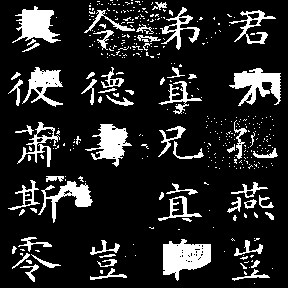 君孔燕豈
弟宜兄宜
令德壽豈
蓼彼蕭斯零